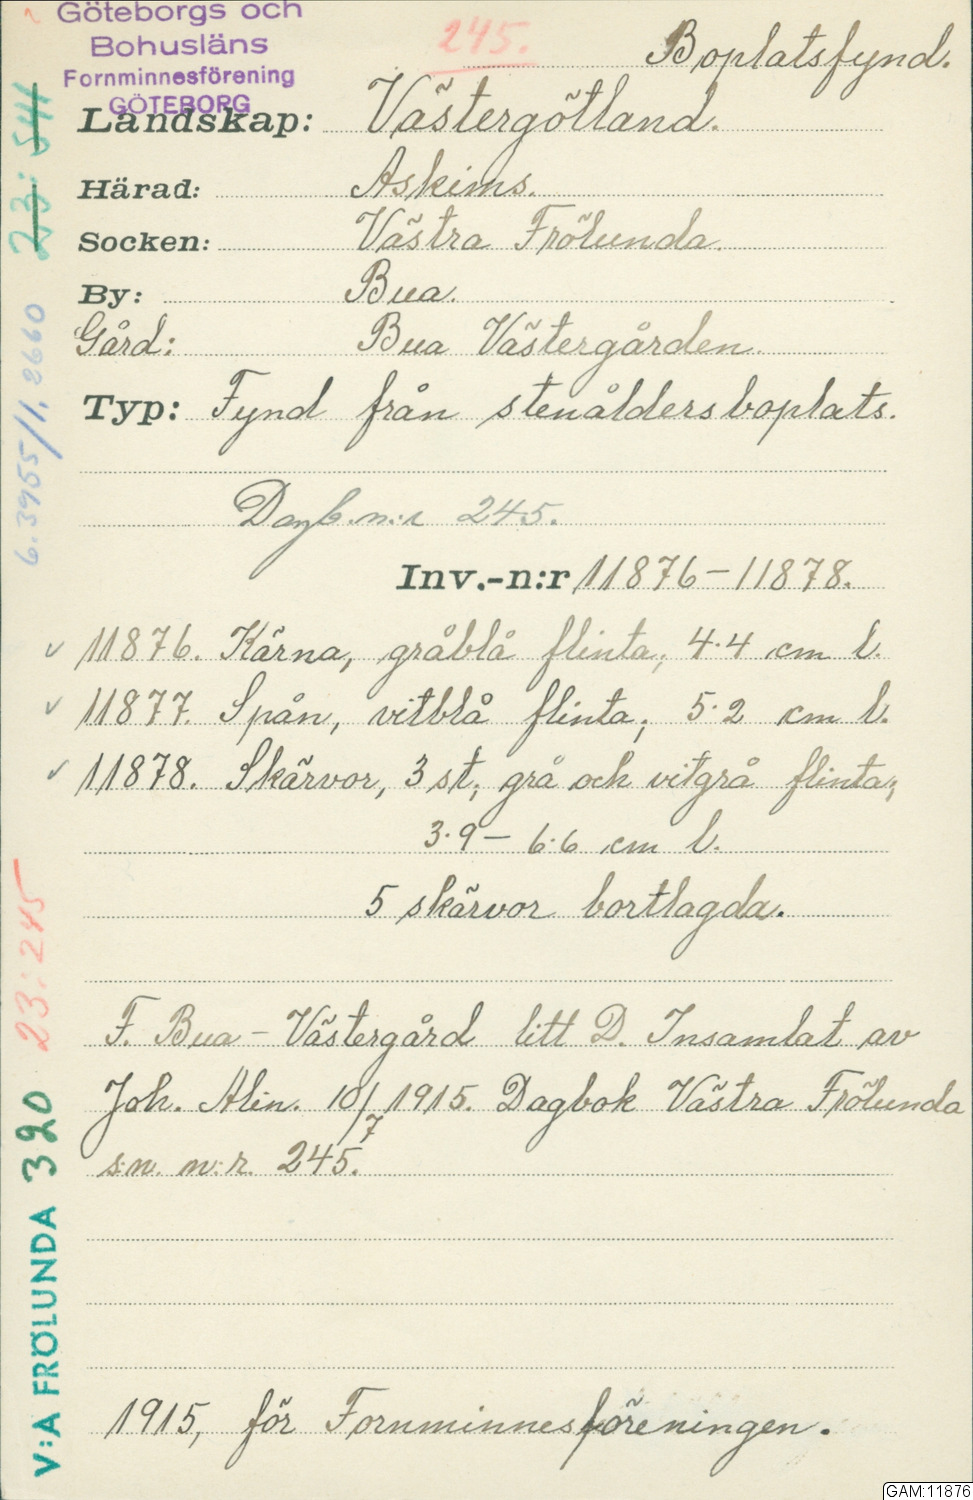 Göteborgs och
Bohusläns
Fornminnesförening
GÖTEBORG
245.
Boplatsfynd.
Landskap: Västergötland.
Härad: Askims.
Socken: Västra Frölunda.
By: Bua.
Gård: Bua Västergården.
Typ: Fynd från stenåldersboplats.
Dagb.n:r 245.
Inv.-n:r 11876-11878.
✓ 11876. Kärna, gråblå flinta; 4.4 cm l.
✓ 11877. Spån, vitblå flinta; 5.2 cm l.
✓ 11878. Skärvor, 3 st; grå och vitgrå flinta;
3.9 - 6.6 cm l.
5 skärvor bortlagda.
F. Bua - Västergård litt D. Insamlat av
Joh. Alin. 10/7 1915. Dagbok Västra Frölunda
s:n. n:r. 245.
1915, för Fornminnesföreningen.
23:541
6.3955/1,2660
23:245
V:A FRÖLUNDA 320
GAM:11876